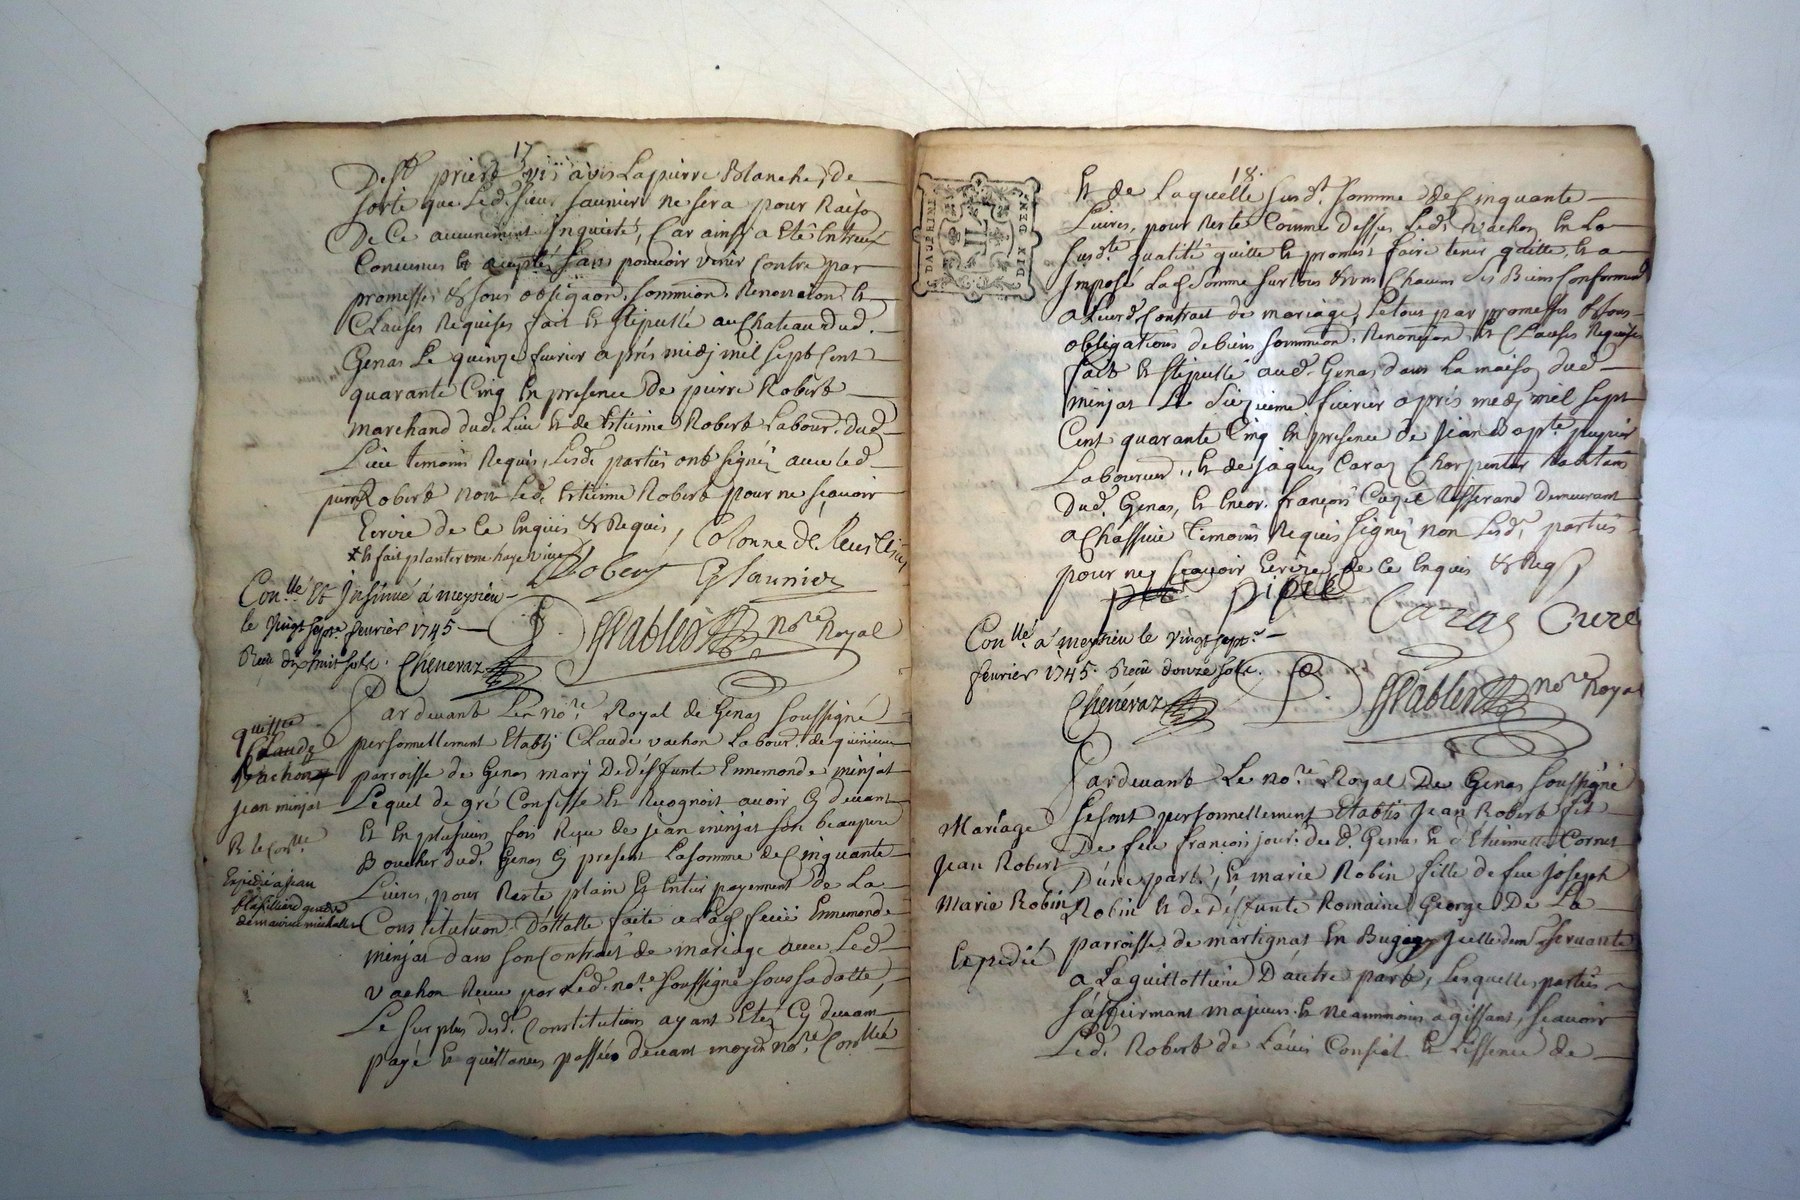 17
Desd. prieré vis avis Lapierre Blanche, de
sorte que Led. sieur saunier ne sera pour Raison
De Ce aucunement Inquieté, Car ainsy a Eté Entreux
Convenu Et accepté sans pouvoir venir Contre par
promesses & sous obligaon. sommion. Renonciaon. &
Clauses Requises fait Et stipullé au Chateau dud.
Genas Le quinze fevrier aprés midj mil sept Cent
quarante Cinq En presence De pierre Robert
marchand dud. Lieu Et de Estienne Robert Labour. dud.
Lieu temoins Requis, Lesd. parties ont signéz avec led.
pierre Robert non Led. Estienne Robert pour ne sçavoir
Ecrire de Ce Enquis & Requis,
* Et fait planter une haye vive
Colonne de
Robert G Saunier
Conllé Et Insinué á meysieu
le vingt sept.e fevrier 1745
Reçu dix huit sols. Cheneraz
Pablers no.re Royal
quittce
Claude
Vachon
jean minjat
Expedié a jean
Pardevant Le no.re Royal de Genas soussigné
personnellement Etablj Claude vachon Labour. de
parroisse de Genas marj De deffunte Ennemonde minjat
Lequel de gré Confesse Et Recognoit avoir Cy devant
Et En plusieurs fois Reçu de jean minjat son beaupere
Boucher dud. Genas Cy present La somme de Cinquante
Livres, pour Reste plain Et Entier payement de La
Constitution Dottalle faite a Lad. feüe Ennemonde
minjat dans son Contrat de mariage avec Led.
vachon Receu par Led. no.re soussigné sous sa datte,
Le surplus desd. Constitutions ayant Eté Cy devant
payé Et quittances passées devant moyd. no.re Conllée
18.
DAUPHINE
II
DIX DEN.
Et de Laquelle susd. somme de Cinquante
Livres, pour Reste Comme dessus Led. vachon En La
susd.te qualitté quitte Et promest faire tenir quitte, Et a
Imposé Lad. somme sur tous & uns Chacuns ses Biens Conformement
a Leurd. Contrat de mariage, Le tout par promesses & sous
obligations de biens sommion. Renonciaon. Et Clauses Requises
fait Et stipullé aud. Genas dans La maison dud.
minjat Le Seizieme fevrier aprés midj mil sept
Cent quarante Cinq En presence de jean bapt.e
Laboureur, Et de jaques Caraz Charpentier habitans
dud. Genas, Et Encor. françois Curel Tisserand demeurant
a Chassieu temoins Requis signéz non Lesd. parties
pour ne sçavoir Ecrire de Ce Enquis & Req.
Caraz Curel
Conllé á meysieu le vingt sept.e
fevrier 1745. Reçu douze sols.
Cheneraz
Pablers no.re Royal
Mariage
Jean Robert
Marie Robin
Expedié
Pardevant Le no.re Royal De Genas soussigné
se sont personnellement Etablis jean Robert fils
De feu françois jour. dud. Genas Et d'Etiennette Cornet
D'une part, Et marie Robin fille de feu joseph
Robin Et de Deffunte Romaine George De La
parroisse de martignat En Bugey Icelle dem. servante
a Laguillottiere D'autre part, Lesquelles parties
s'affirmant majeurs Et neammoins agissant, sçavoir
Led. Robert de L'avis Conseil Et Lissence de